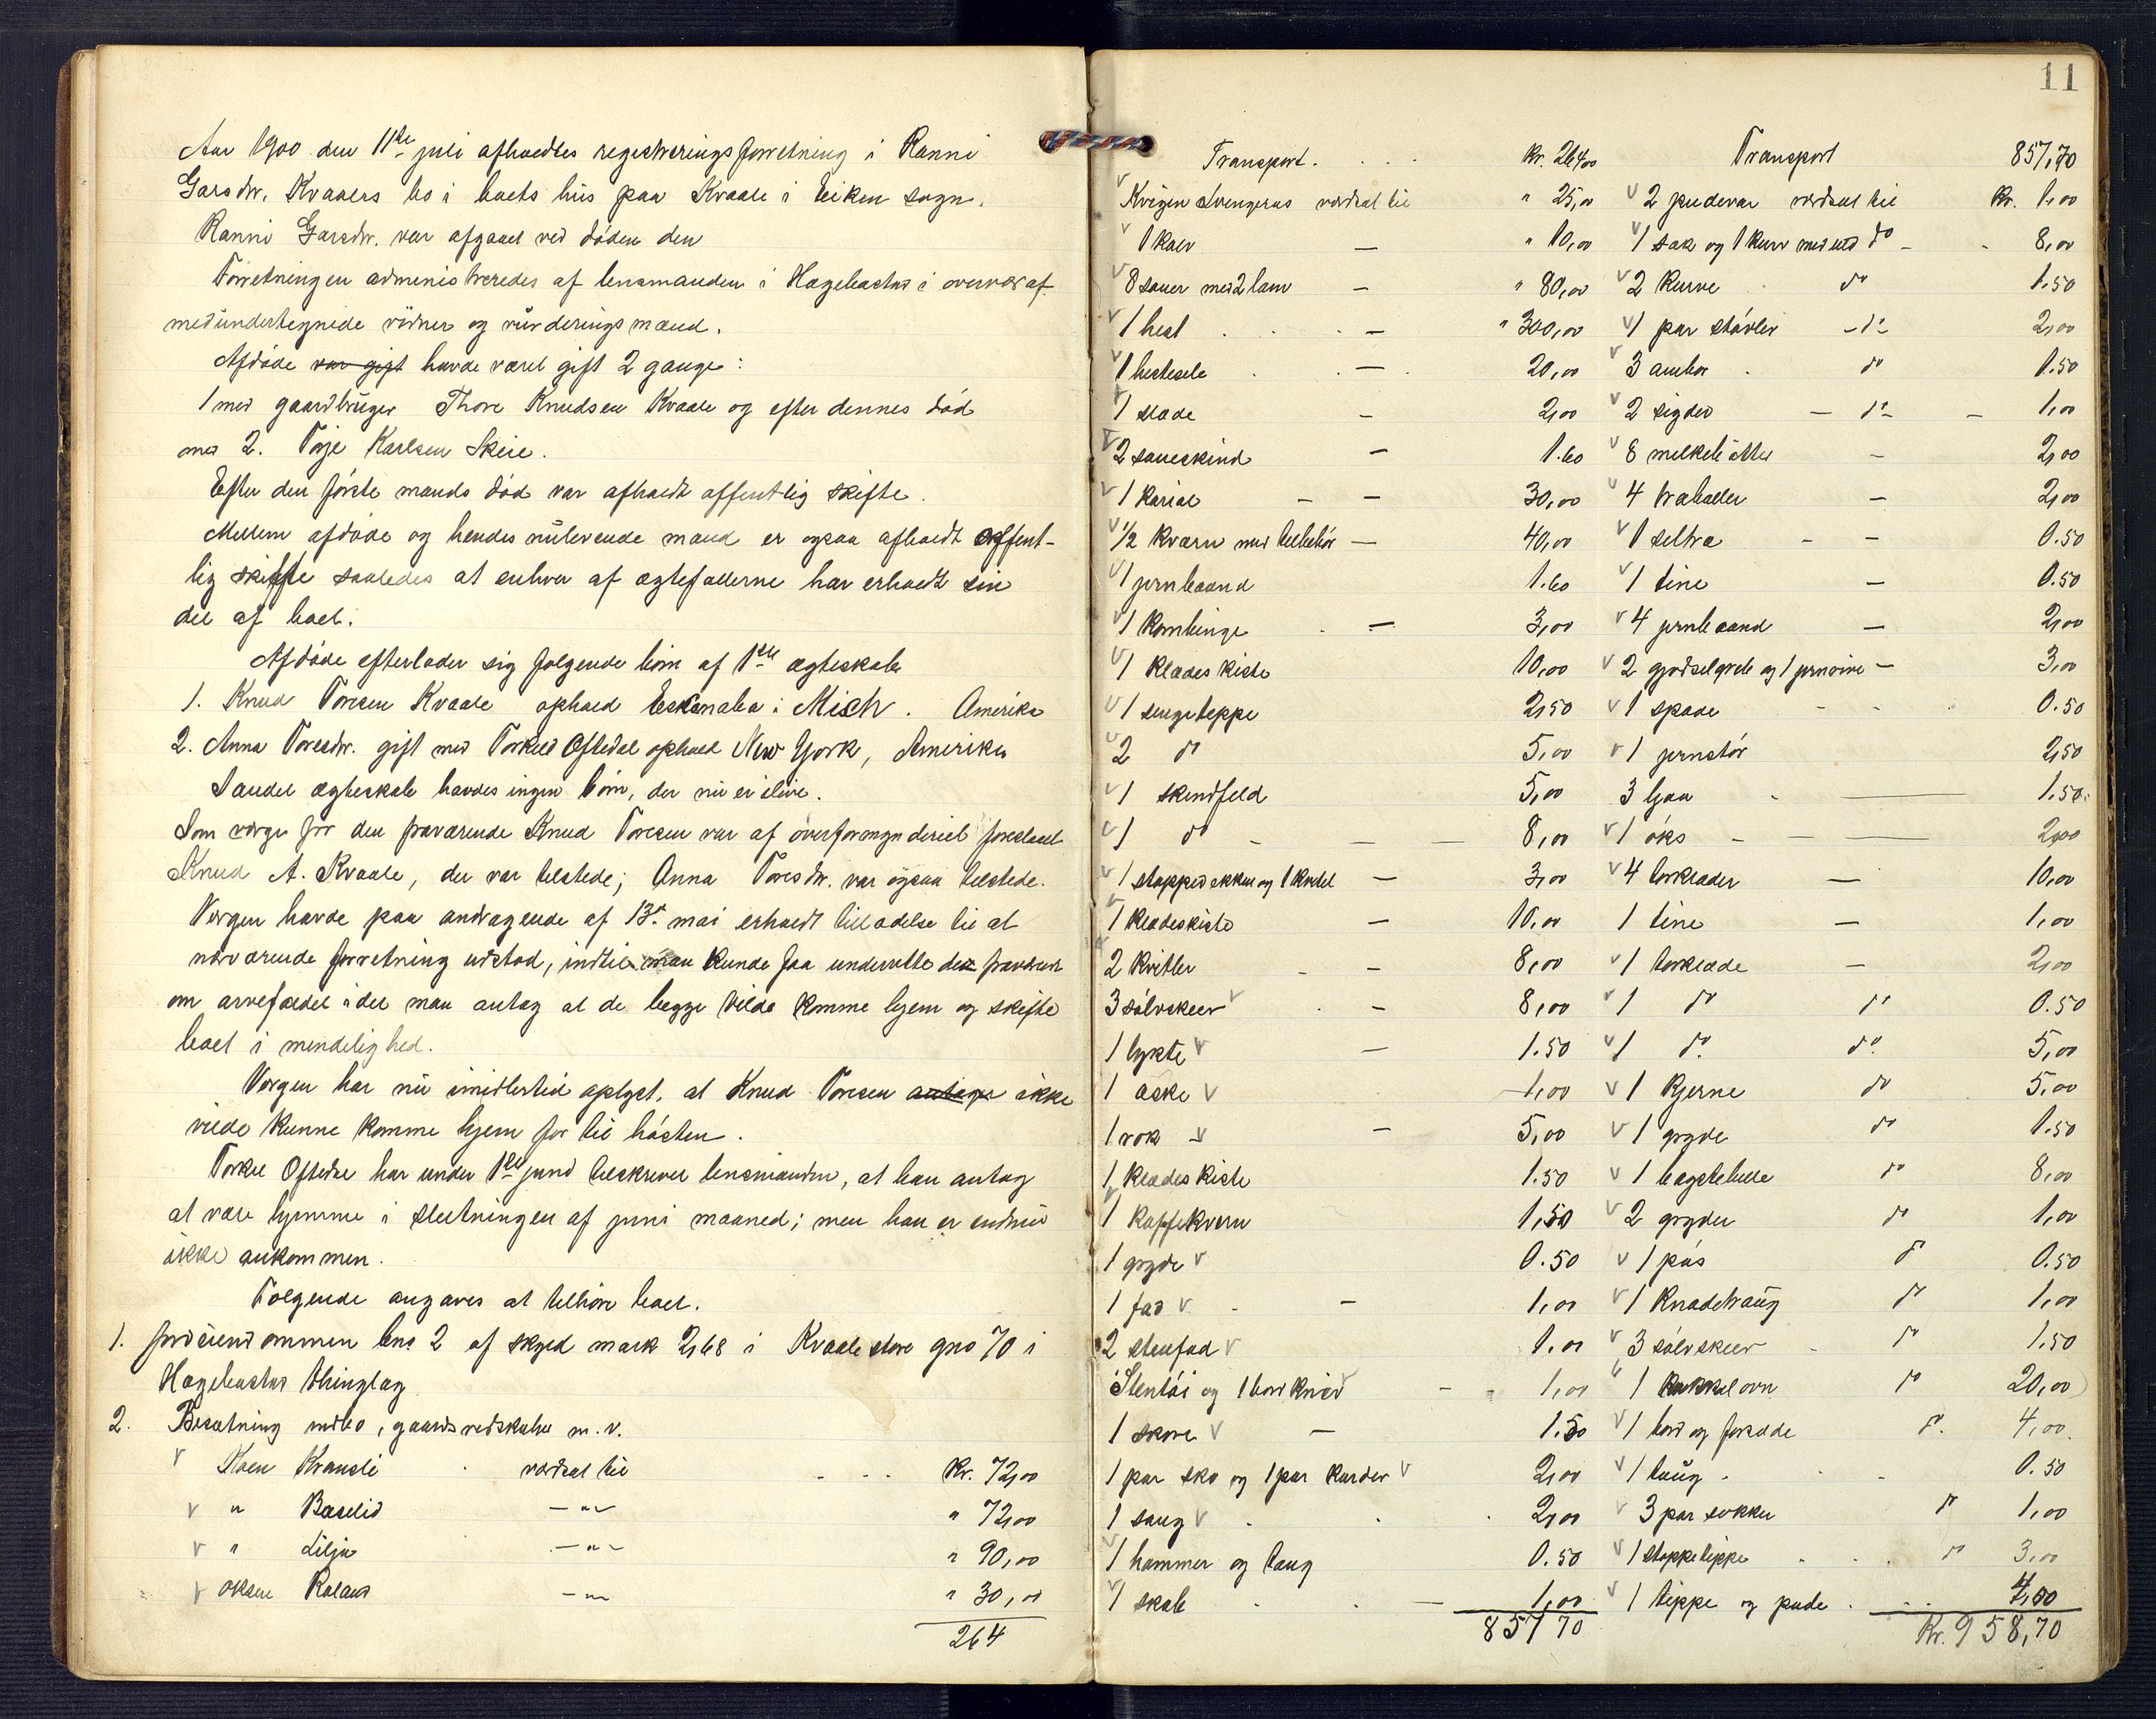 Aar 1900 den 11te juli afholdtes registreringsforretning i Ranni
Garsdtr. Kvaales bo i boets hus paa Kvaale i Eiken sogn.
Ranni Garsdtr. var afgaaet ved døden den
Forretningen administreredes af lensmanden i Hægebostad i overvær af
medundertegnede vidner og vurderingsmænd.
Afdøde var gift havde været gift 2 gange:
1 med gaardbruger Thore Knudsen Kvaale og efter dennes død
med 2. Toje Karlsen Skeie.
Efter den første mands død var afholdt offentlig skifte.
Mellem afdøde og hendes nulevende mand er ogsaa afholdt offent-
lig skifte saaledes at enhver af ægtefællerne har erholdt sin
del af boet.
Afdøde efterlader sig følgende børn af 1ste ægteskab
1. Knud Toresen Kvaale ophold Eskanaba i Mich. Amerika
2. Anna Toresdtr. gift med Torkild Oftedal ophold New York, Amerika
I andet ægteskab havdes ingen børn, der nu er ilive.
Som værge for den fraværende Knud Toresen var af overformynderiet foreslaaet
Knud A. Kvaale, der var tilstede; Anna Toresdtr. var ogsaa tilstede.
Værgen havde paa andragende af 13de mai erholdt tilladelse til at
nærværende forretning udstod, indtil man kunde faa underrette de fraværende
om arvefaldet idet man antog at de begge vilde komme hjem og skifte
boet i mindelighed.
Værgen har nu imidlertid oplyst, at Knud Toresen antages ikke
vilde kunne komme hjem før til høsten.
Torkel Oftedal har under 1ste juni tilskrevet lensmanden, at han antog
at være hjemme i slutningen af juni maaned; men han er endnu
ikke ankommen.
Følgende angaves at tilhøre boet.
1. Jordeiendommen bno 2 af skyld mark 2,68 i Kvaale store gno 70 i
Hægebostad thinglag
2. Besætning indbo, gaardsredskaber m.v.
V Koen Kransli værdsat til Kr. 72,00
V " Baselid —"— " 72,00
V " Lilja —"— " 90,00
V Oksen Kolans —"— " 30,00
264
11
Transport. Kr. 264,00
V Kvigen Svengeraas værdsat til " 25,00
V 1 kalv — " 10,00
V 8 sauer med 2 lam — " 80,00
V 1 hest — " 300,00
V 1 hestesele — 20,00
V 1 slæde — 2,00
V 2 saueskind — 1.60
V 1 kariol — 30,00
V 1/2 kværn med tilbehør — 40,00
V 1 jernbaand 1.60
V 1 kornbinge — 3,00
V 1 klædeskiste 10,00
V 1 sengeteppe 2,50
V 2 do 5,00
V 1 skindfeld 5,00
V 1 do — 8,00
V 1 stoppedækken og 1 kudel — 3,00
V 1 klædeskiste — 10,00
V 2 kvitler — 8,00
3 sølvskeer V — 8,00
1 lygte V — 1.50
1 æske V 1,00
1 rok V — 5,00
1 klædeskiste 1.50
V 1 kaffekvern 1,50
1 gryde V 0.50
1 fad V — 1,00
2 stenfad V 1.00
Stentøi og 1 bordkniv V 1,00
1 skore V — 1.50
1 par sko og 1 par karder V 2,00
1 saug V 2,00
V 1 hammer og taug 0.50
V 1 skab — 1,00
857,70
Transport 857,70
V 2 pudevar værdsat til Kr. 1,00
V 1 sæk og 1 kurv med uld do 8,00
V 2 kurve do 1.50
V 1 par støvler — do 2,00
V 3 ambor do 1.50
V 2 sigder — do — 1,00
V 8 melkebøtter — 2,00
V 4 træboller — 2,00
V 1 seltræ — 0.50
V 1 tine — 0.50
V 4 jernbaand — 2,00
V 2 gjødselgreb og 1 jernvine — 3,00
V 1 spade 0.50
V 1 jernstør 2,50
3 ljaa — 1.50
V 1 øks — 2,00
V 4 torklæder — 10,00
1 tine — 1,00
V 1 torklæde — 2,00
V 1 do do 0.50
V 1 do. do 5,00
V 1 kjerne do 5,00
V 1 gryde do 1.50
V 1 bagstehelle do 8,00
V 2 gryder do 1,00
V 1 pøs do 0.50
V 1 knadetraug do 1,00
V 3 sølvskeer do 1.50
V 1 kakkelovn do 20,00
V 1 bord og forsæde do. 4,00
V 1 taug 0.50
V 3 par sokker do 1,00
V 1 stoppeteppe do 3,00
V 1 teppe og pude 4,00
Kr. 958,70